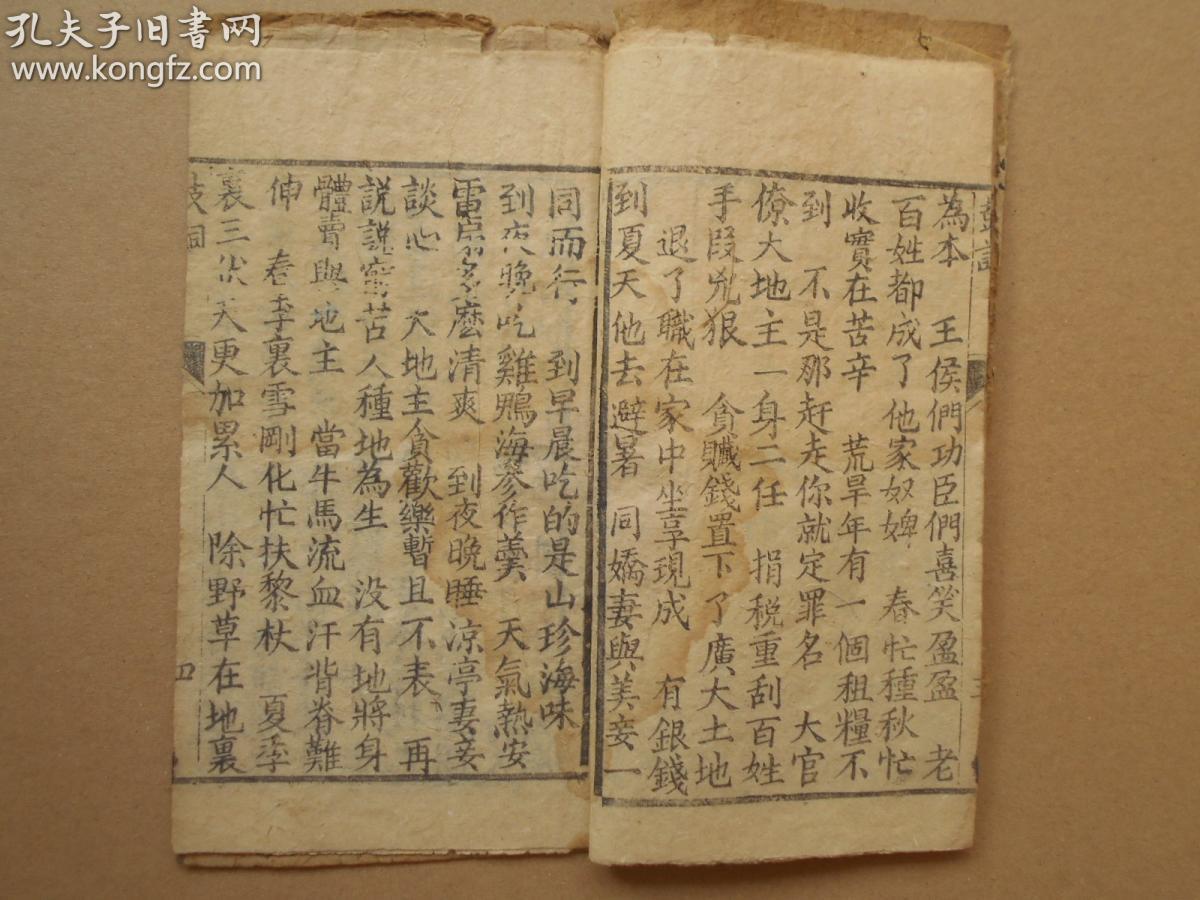 孔夫子旧书网
www.kongfz.com
為本　王侯們功臣們喜笑盈盈　老
百姓都成了他家奴婢　春忙種秋忙
收實在苦辛　荒旱年有一個租糧不
到　不是那赶走你就定罪名　大官
僚大地主一身二任　捐税重刮百姓
手段兇狠　貪贓錢置下了廣大土地
退了職在家中坐享現成　有銀錢
到夏天他去避暑　同嬌妻與美妾一
同而行　到早晨吃的是山珍海味
到夜晚吃雞鴨海參作羹　天氣熱安
電扇多麽清爽　到夜晚睡涼亭妻妾
談心　大地主貪歡樂暫且不表　再
説説窮苦人種地為生　没有地將身
體賣與地主　當牛馬流血汗背脊難
伸　春季裏雪剛化忙扶黎杖　夏季
裏三伏天更加累人　除野草在地裏
鼓詞
四